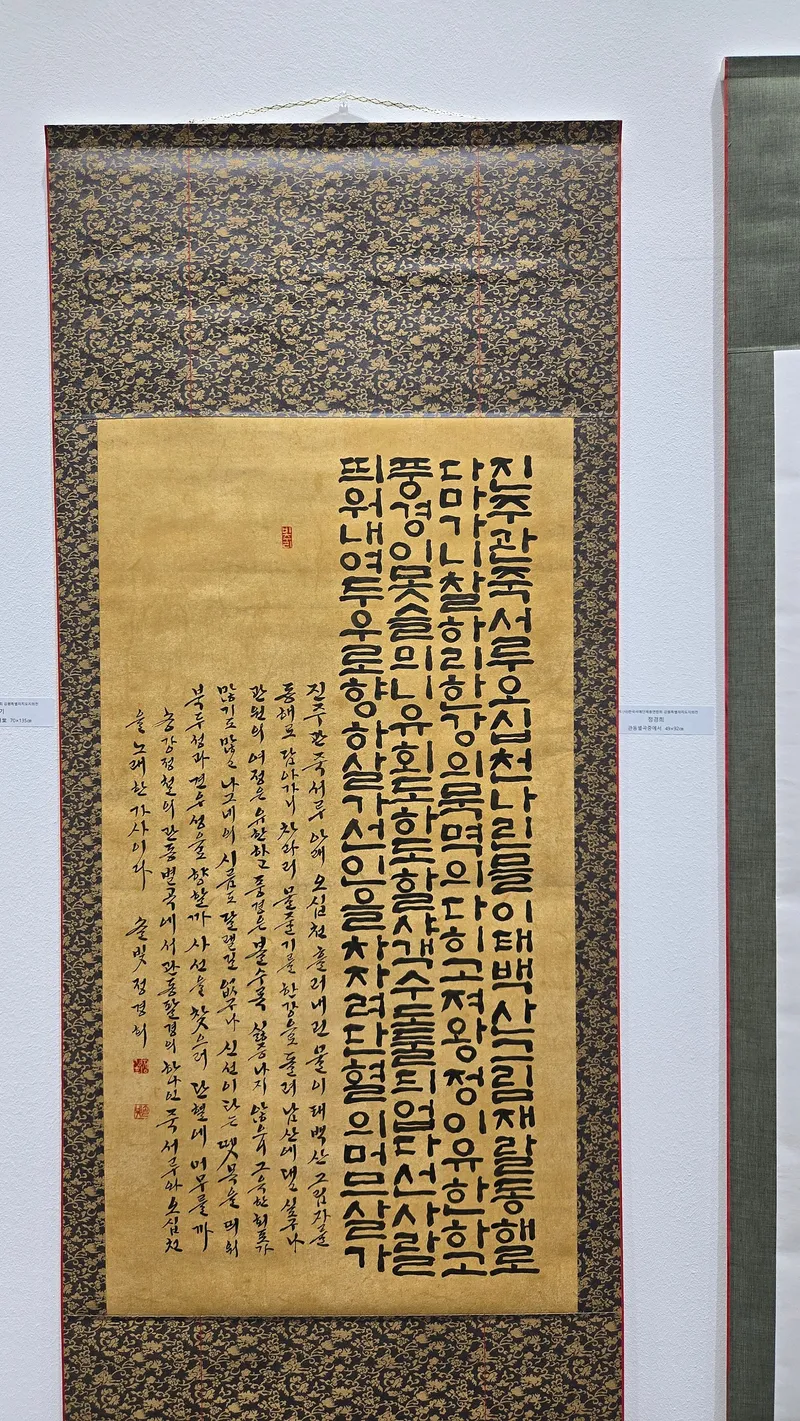 진주관죽서루오십천나린믈이태백산그림재랄동해로
다마가니찰하리한강의목멱의다히고져왕정이유한하고
풍경이못슬믜니유회도하도할샤객수도둘듸업다선사랄
띄워내여두우로향하살가선인을차자려단혈의머므살가
진주관 죽서루 아래 오십천 흘러내린 물이 태백산 그림자를
동해로 담아가니 차라리 물줄기를 한강으로 돌려 남산에 댄 싶구나
관원의 여정은 유한하고 풍경은 볼수록 싫증나지 않으니 그윽한 회포가
많기도 많고 나그네의 시름도 달랠길 없구나 신선이 타는 뗏목을 띄워
북두성과 견우성으로 향할까 사선을 찾으러 단혈에 머무를까
송강정철의 관동별곡에서 관동팔경의 하나인 죽서루와 오십천
을 노래한 가사이다 솔빛 정경희
정경희
관동별곡중에서 49×92㎝
70×135㎝